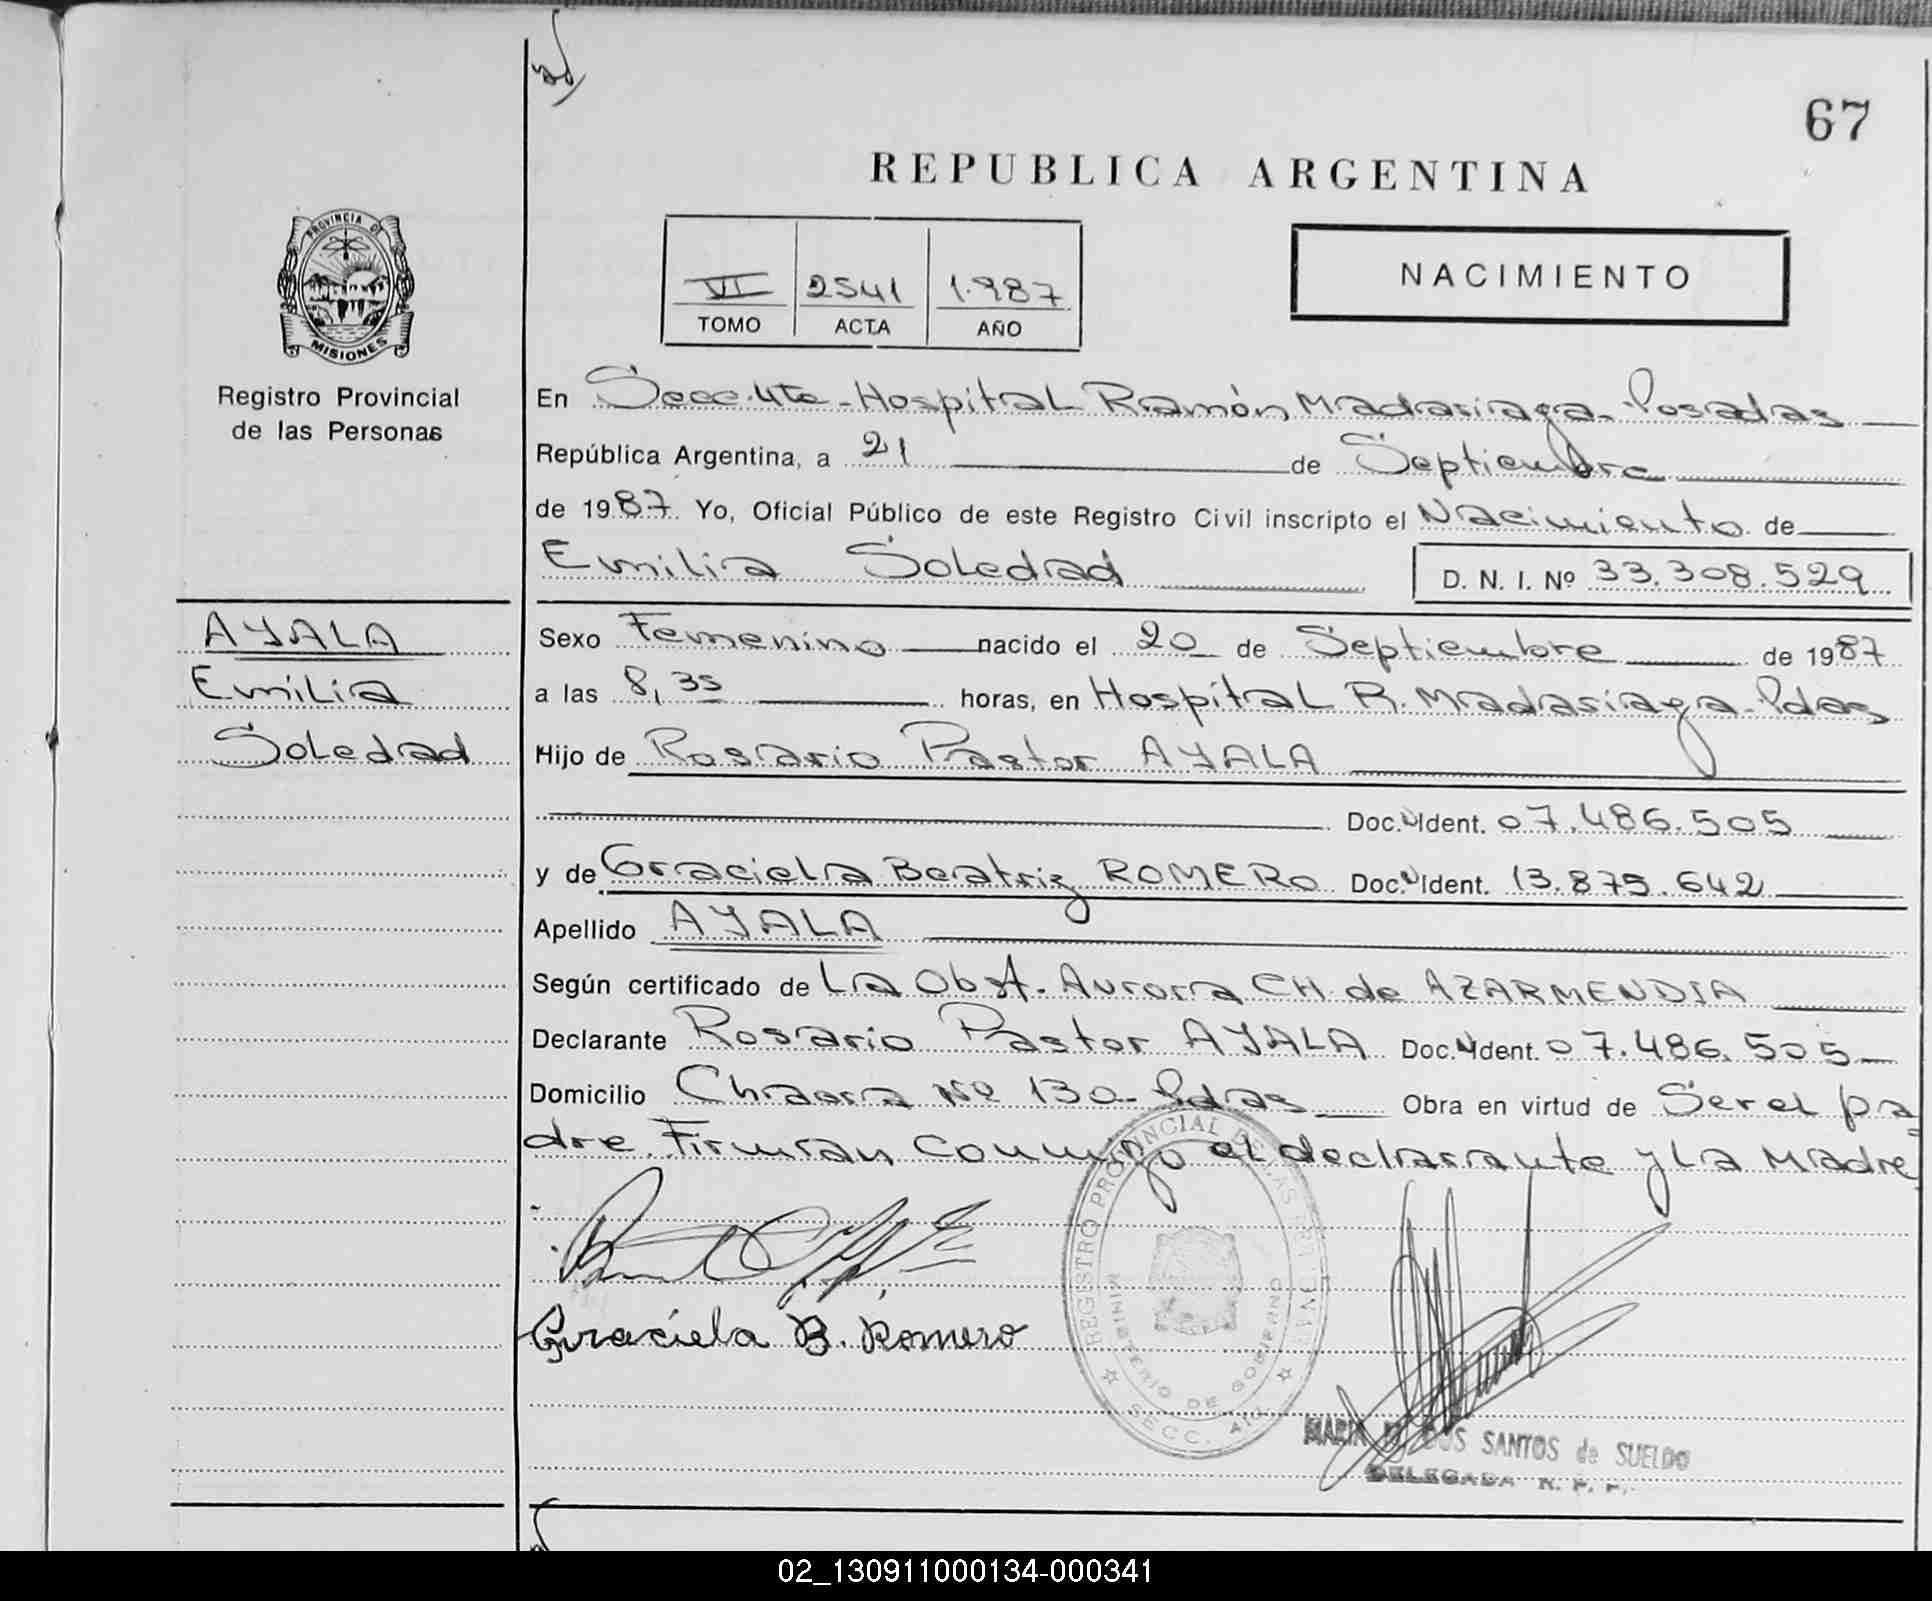 67
REPUBLICA ARGENTINA
PROVINCIA DE
MISIONES
Registro Provincial
de las Personas
VI 2541 1.987
TOMO ACTA AÑO
NACIMIENTO
En Secc. 4ta - Hospital Ramón Madariaga - Posadas
República Argentina, a 21 de Septiembre
de 1987. Yo, Oficial Público de este Registro Civil inscripto el Nacimiento de
Emilia Soledad D. N. I. Nº 33.308.529
AYALA
Emilia
Soledad
Sexo Femenino nacido el 20 de Septiembre de 1987
a las 8,35 horas, en Hospital R. Madariaga - Pdas
Hijo de Rosario Pastor AYALA
Doc. Ident. 07.486.505
y de Graciela Beatriz ROMERO Doc. Ident. 13.875.642
Apellido AYALA
Según certificado de La Obst. Aurora CH de AZARMENDIA
Declarante Rosario Pastor AYALA Doc. Ident. 07.486.505
Domicilio Chacra Nº 130 - Pdas Obra en virtud de Ser el pa
dre. Firman conmigo el declarante y la Madre
Graciela B. Romero
REGISTRO PROVINCIAL DE LAS PERSONAS
MINISTERIO DE GOBIERNO
SECC. 4ta
MARIA DOS SANTOS de SUELDO
DELEGADA R. P. P.
02_130911000134-000341